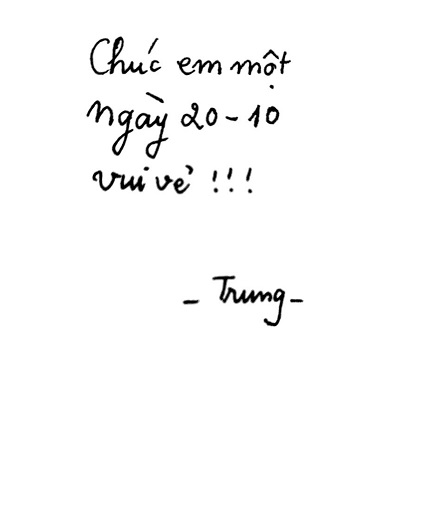 Chúc em một
ngày 20-10
vui vẻ !!!
- Trung -